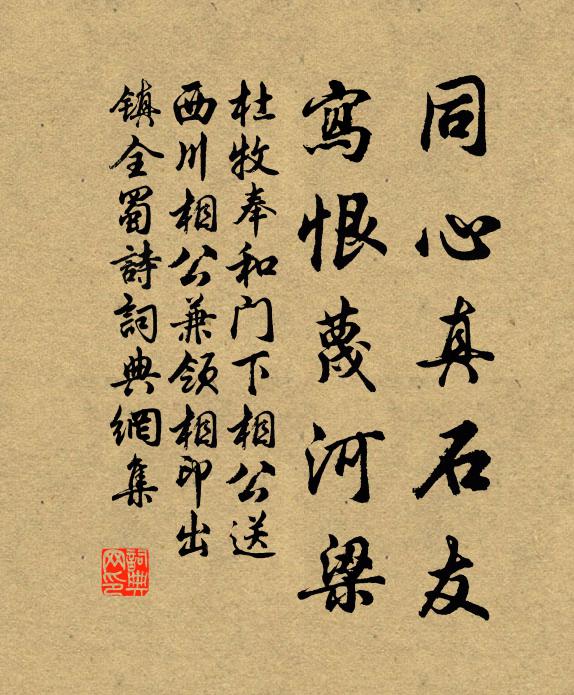 同心真石友
寫恨蔑河梁
杜牧奉和门下相公送
西川相公兼领相印出
镇全蜀詩詞典網集
詞典
网印